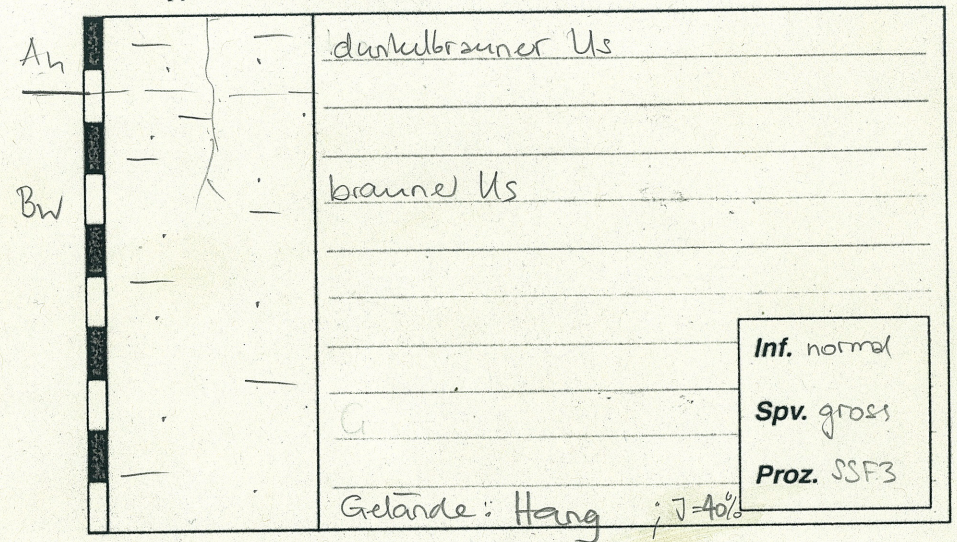 Ah
dunkelbrauner Us
Bw
brauner Us
Inf. normal
Spv. gross
Proz. SSF3
Gelände: Hang ; J=40%